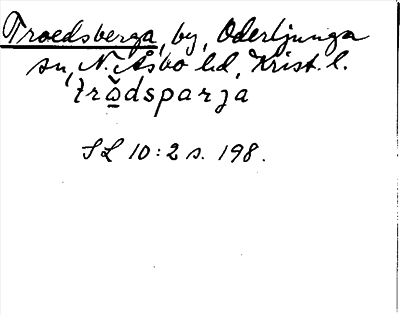 Troedsberga, by, Oderljunga
sn, N. Åsbo hd, Krist. l.
SL 10:2 s. 198.